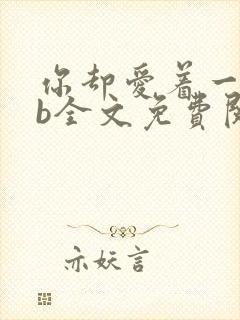 你却爱着一
b全文免費閱
亦妖言